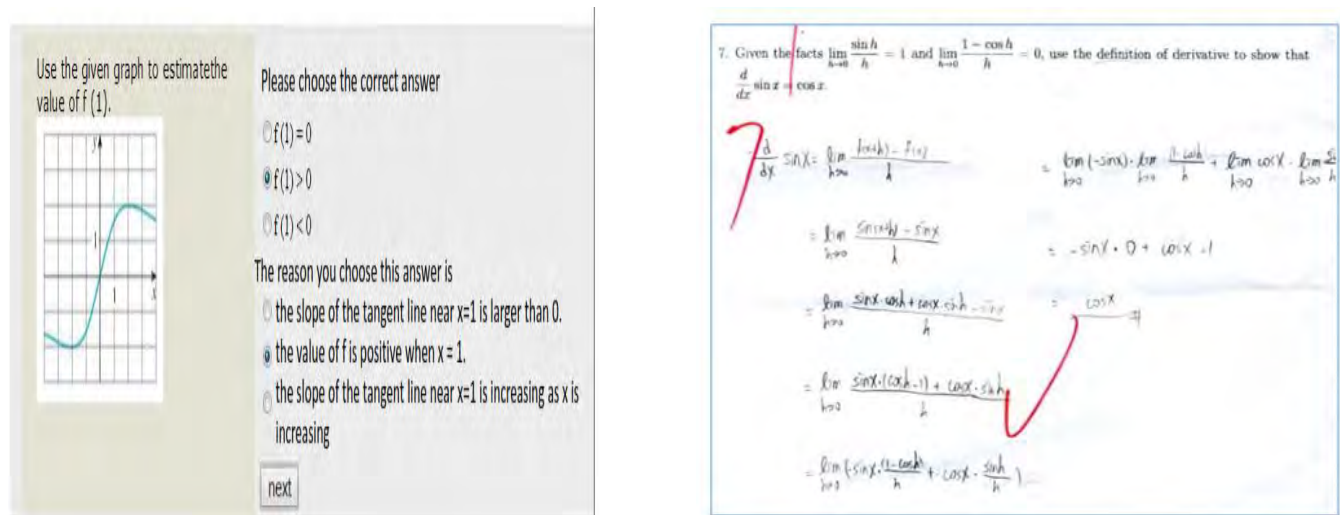 Use the given graph to estimatethe
value of f (1).
y
1
1
x
Please choose the correct answer
f(1) = 0
f(1) > 0
f(1) < 0
The reason you choose this answer is
the slope of the tangent line near x=1 is larger than 0.
the value of f is positive when x = 1.
the slope of the tangent line near x=1 is increasing as x is
increasing
next
7. Given the facts lim h→0 sin h / h = 1 and lim h→0 1 − cos h / h = 0, use the definition of derivative to show that
d/dx sin x = cos x.
7
d/dx sinx = lim h→0 f(x+h) - f(x) / h
= lim h→0 sin(x+h) - sinx / h
= lim h→0 sinx·cosh + cosx·sinh - sinx / h
= lim h→0 sinx·(cosh-1) + cosx·sinh / h
= lim h→0 (-sinx·(1-cosh) / h + cosx·sinh / h)
= lim h→0 (-sinx)· lim h→0 (1-cosh) / h + lim h→0 cosx · lim h→0
= -sinx · 0 + cosx · 1
= cosx